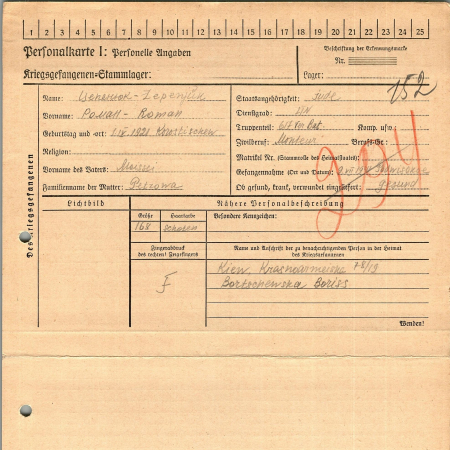 1 2 3 4 5 6 7 8 9 10 11 12 13 14 15 16 17 18 19 20 21 22 23 24 25
Personalkarte I: Personelle Angaben
Kriegsgefangenen-Stammlager:
Beschriftung der Erkennungsmarke
Nr.
Lager:
152
Des Kriegsgefangenen
Name:
Vorname: Роман - Roman
Geburtstag und -ort:
Religion:
Vorname des Vaters: Moissei
Familienname der Mutter: Petrowa
Staatsangehörigkeit: Jude
Dienstgrad:
Truppenteil: 617 Bat. Komp. usw.:
Zivilberuf: Monteur Berufs-Gr.:
Matrikel Nr. (Stammrolle des Heimatstaates):
Gefangennahme (Ort und Datum):
Ob gesund, krank, verwundet eingeliefert: gesund
Lichtbild
Nähere Personalbeschreibung
Größe Haarfarbe Besondere Kennzeichen:
168
Fingerabdruck
des rechten! Zeigefingers
Name und Anschrift der zu benachrichtigenden Person in der Heimat
des Kriegsgefangenen
F
Kiew, Krasnoarmeiska
Boriss
Wenden!